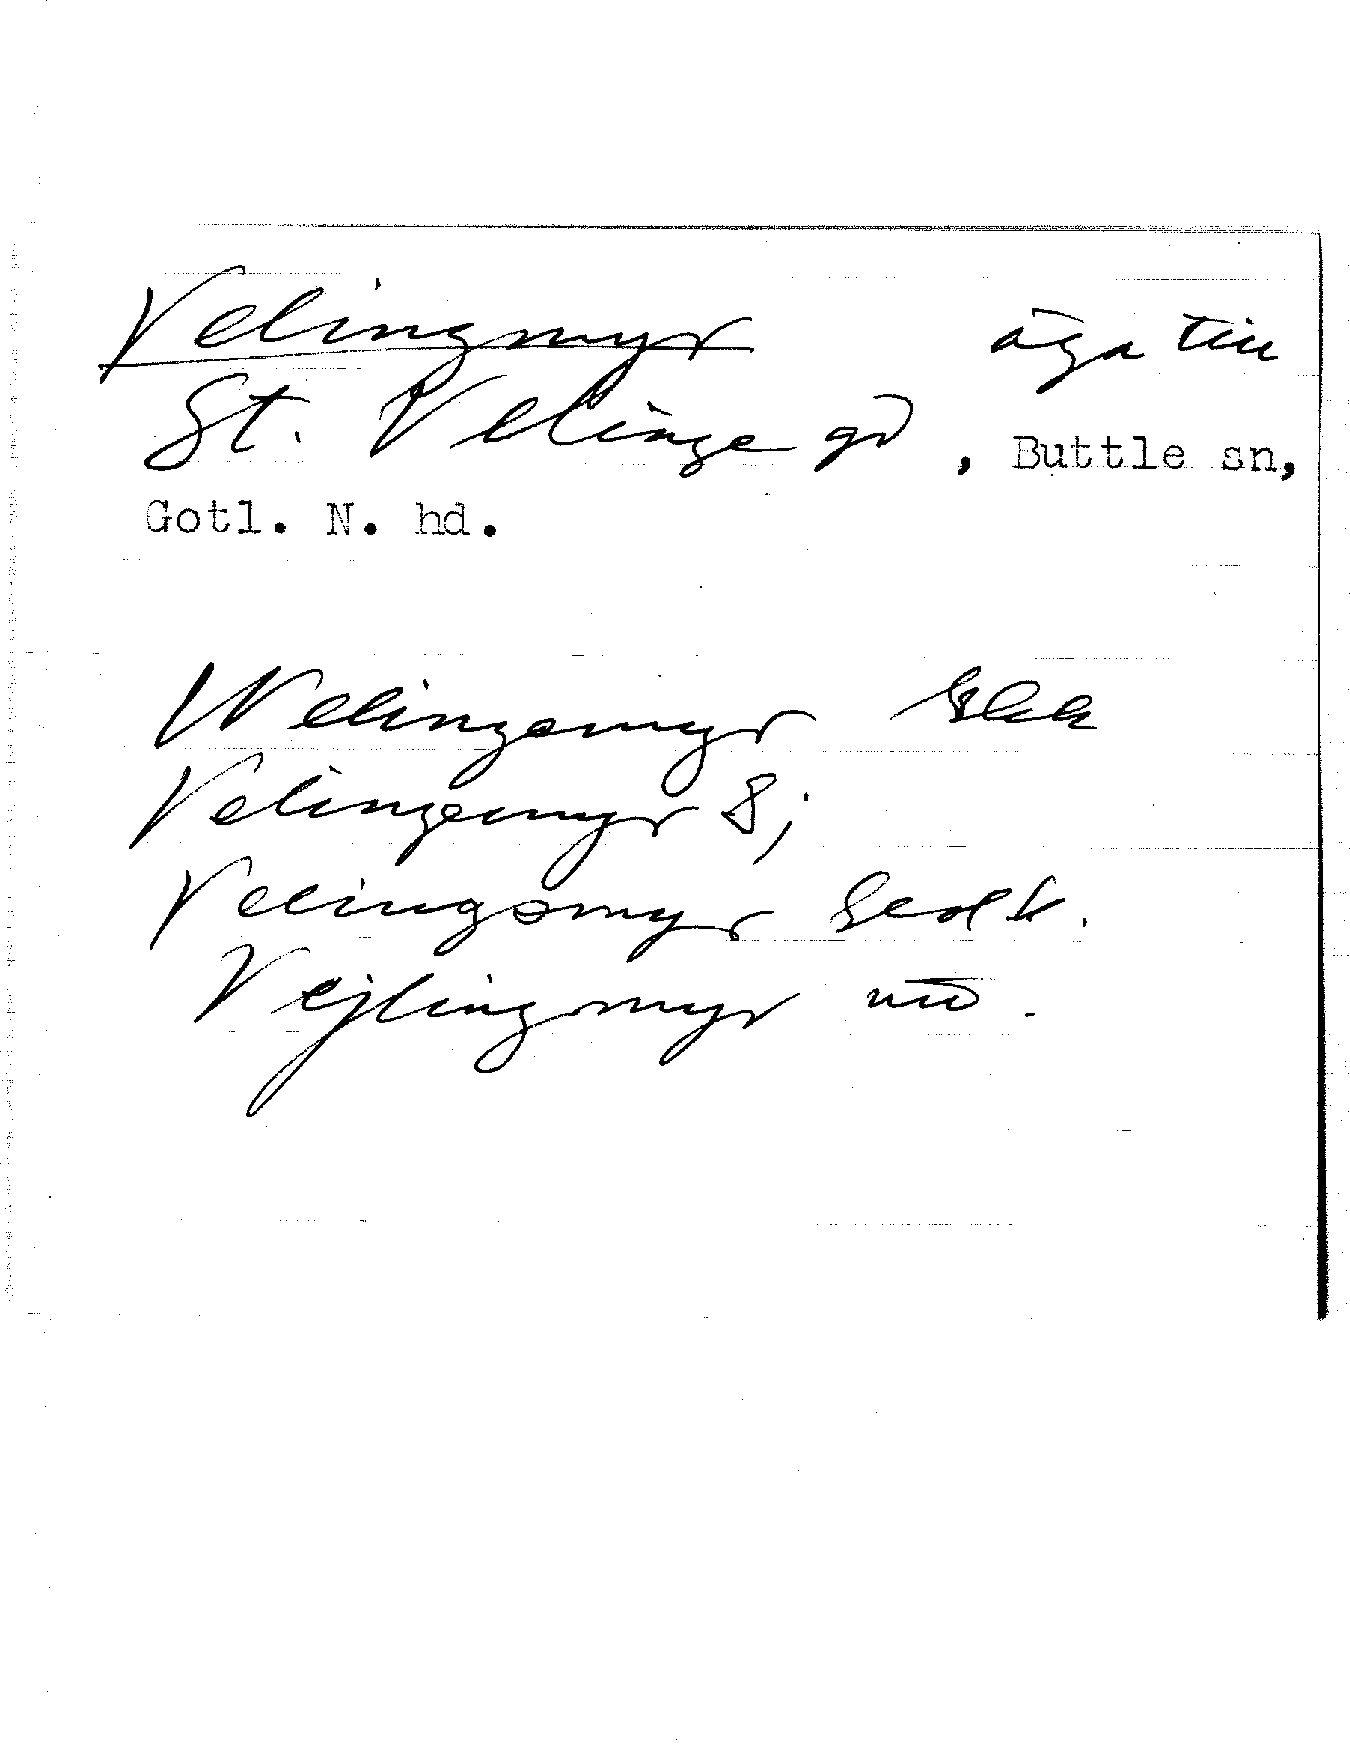 Velingmyr äga till
St. Velinge gd, Buttle sn,
Gotl. N. hd.
Welingemyr
Velingemyr 8;
Velingemyr
Vejlingmyr